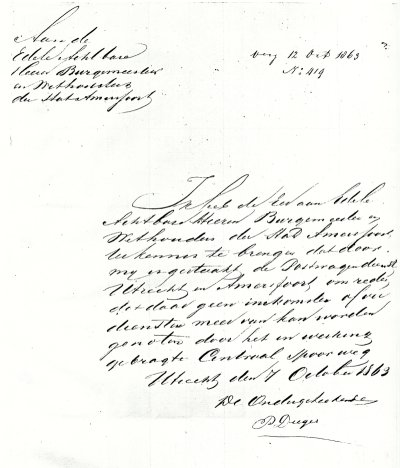 Aan de
Edele Achtbare
Heeren Burgemeester
en Wethouders
der Stad Amersfoort
ver 12 Oct 1863
No: 419
Ik heb de Eer aan Edele
Achtbare Heeren Burgemeester en
Wethouders der Stad Amersfoort,
ter kennis te brengen dat door
my is gestaakt de Postwagendienst
Utrecht en Amersfoort, om reden
dat daar geen inkomsten of ver
diensten meer van kan worden
genoten door het in werking
gebragte Centraal Spoorweg
Utrecht den 7 October 1863
De Ondergeteekende